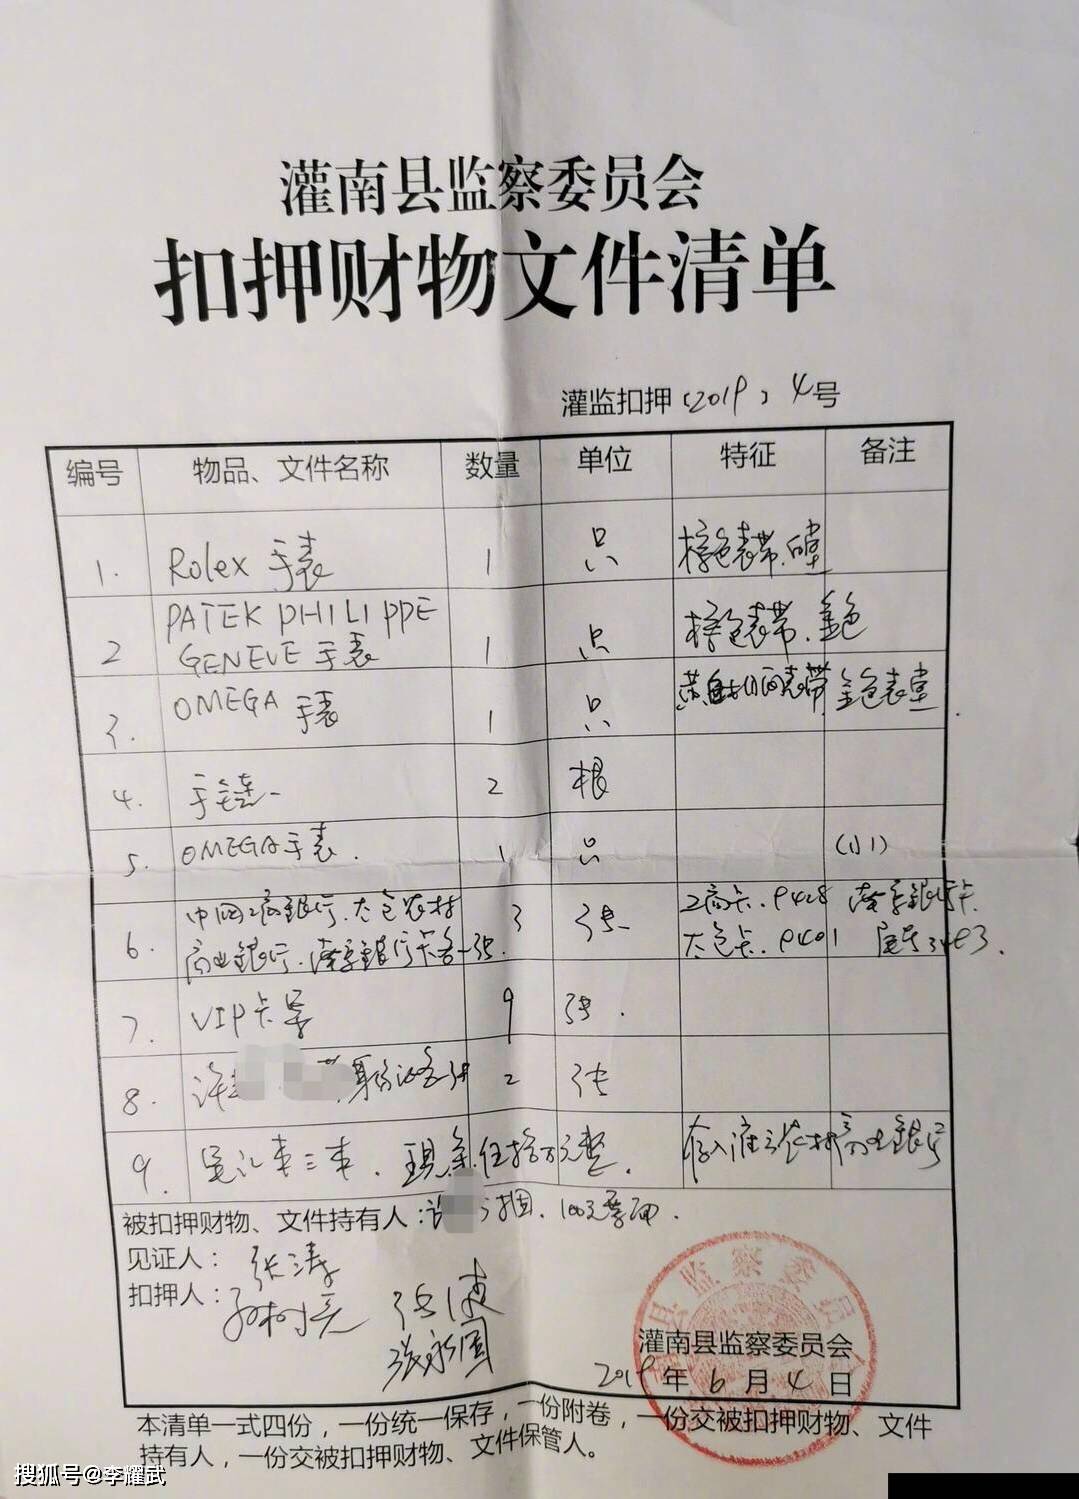 灌南县监察委员会
扣押财物文件清单
灌监扣押(2019)4号
编号 物品、文件名称 数量 单位 特征 备注
1. Rolex 手表 1 只 棕色表带、白
2 PATEK PHILIPPE GENEVE 手表 1 只 棕色表带、金色
3. OMEGA 手表 1 只 表带 金色表壳
4. 手链 2 根
5. OMEGA手表. 1 只 (小1)
6. 中国工商银行、太仓农村商业银行、南京银行卡各一张. 3 张 工商卡.9428 南京银行卡 太仓卡.9401 尾号3483.
7. VIP卡等 9 张.
8. 许 身份证各一张 2 张
9. 笔记本三本、现金伍拾万元整. 存入灌云农村商业银行
被扣押财物、文件持有人: 捆、100元票面.
见证人: 张涛
扣押人: 孙树亮 张波
张永国
灌南县监察委员会
2019年6月4日
本清单一式四份，一份统一保存，一份附卷，一份交被扣押财物、文件
持有人，一份交被扣押财物、文件保管人。
县监察委员
搜狐号@李耀武